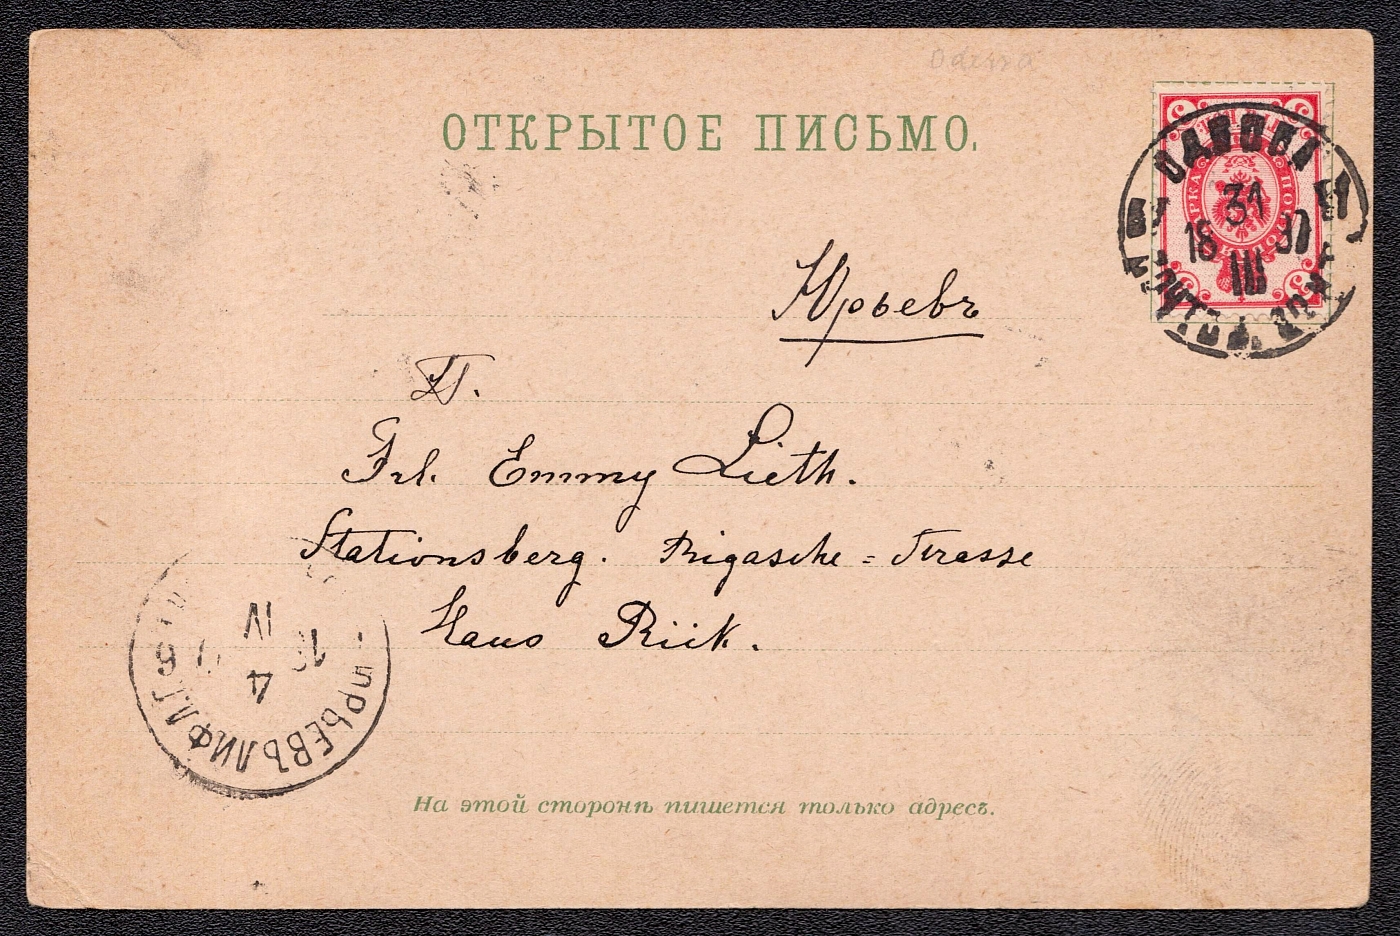 ОТКРЫТОЕ ПИСЬМО.
ОДЕССА
31
18
III
Юрьевъ
Frl. Emmy Lieth.
Stationsberg. Rigasche = Strasse
Haus Riik.
IV
4
ЮРЬЕВЪ ЛИФЛ. Г.
На этой сторонѣ пишется только адресъ.